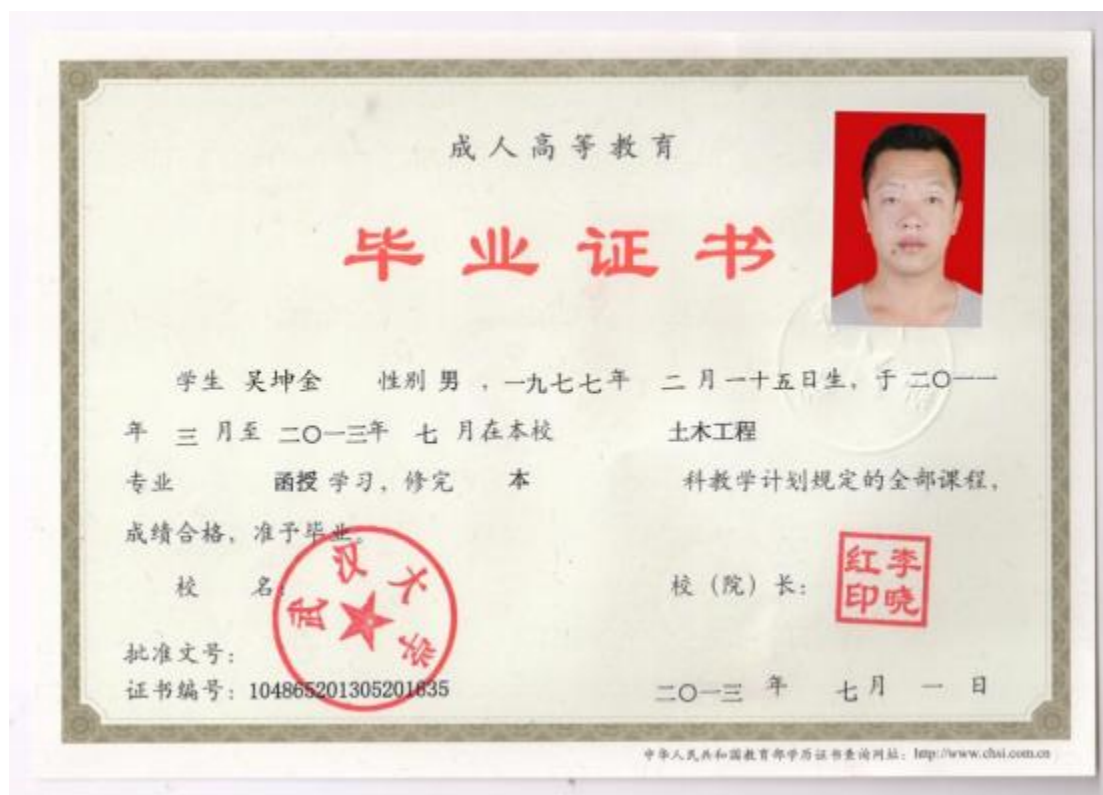 成人高等教育
毕业证书
学生 吴坤金 性别 男 ，一九七七年 二 月 一十五日生，于 二〇一一
年 三 月至 二〇一三年 七 月在本校 土木工程
专业 函授 学习，修完 本 科教学计划规定的全部课程，
成绩合格，准予毕业。
校 名： 武汉大学 校（院）长： 李晓红印
批准文号：
证书编号：104865201305201635 二〇一三 年 七月 一 日
中华人民共和国教育部学历证书查询网站：http://www.chsi.com.cn